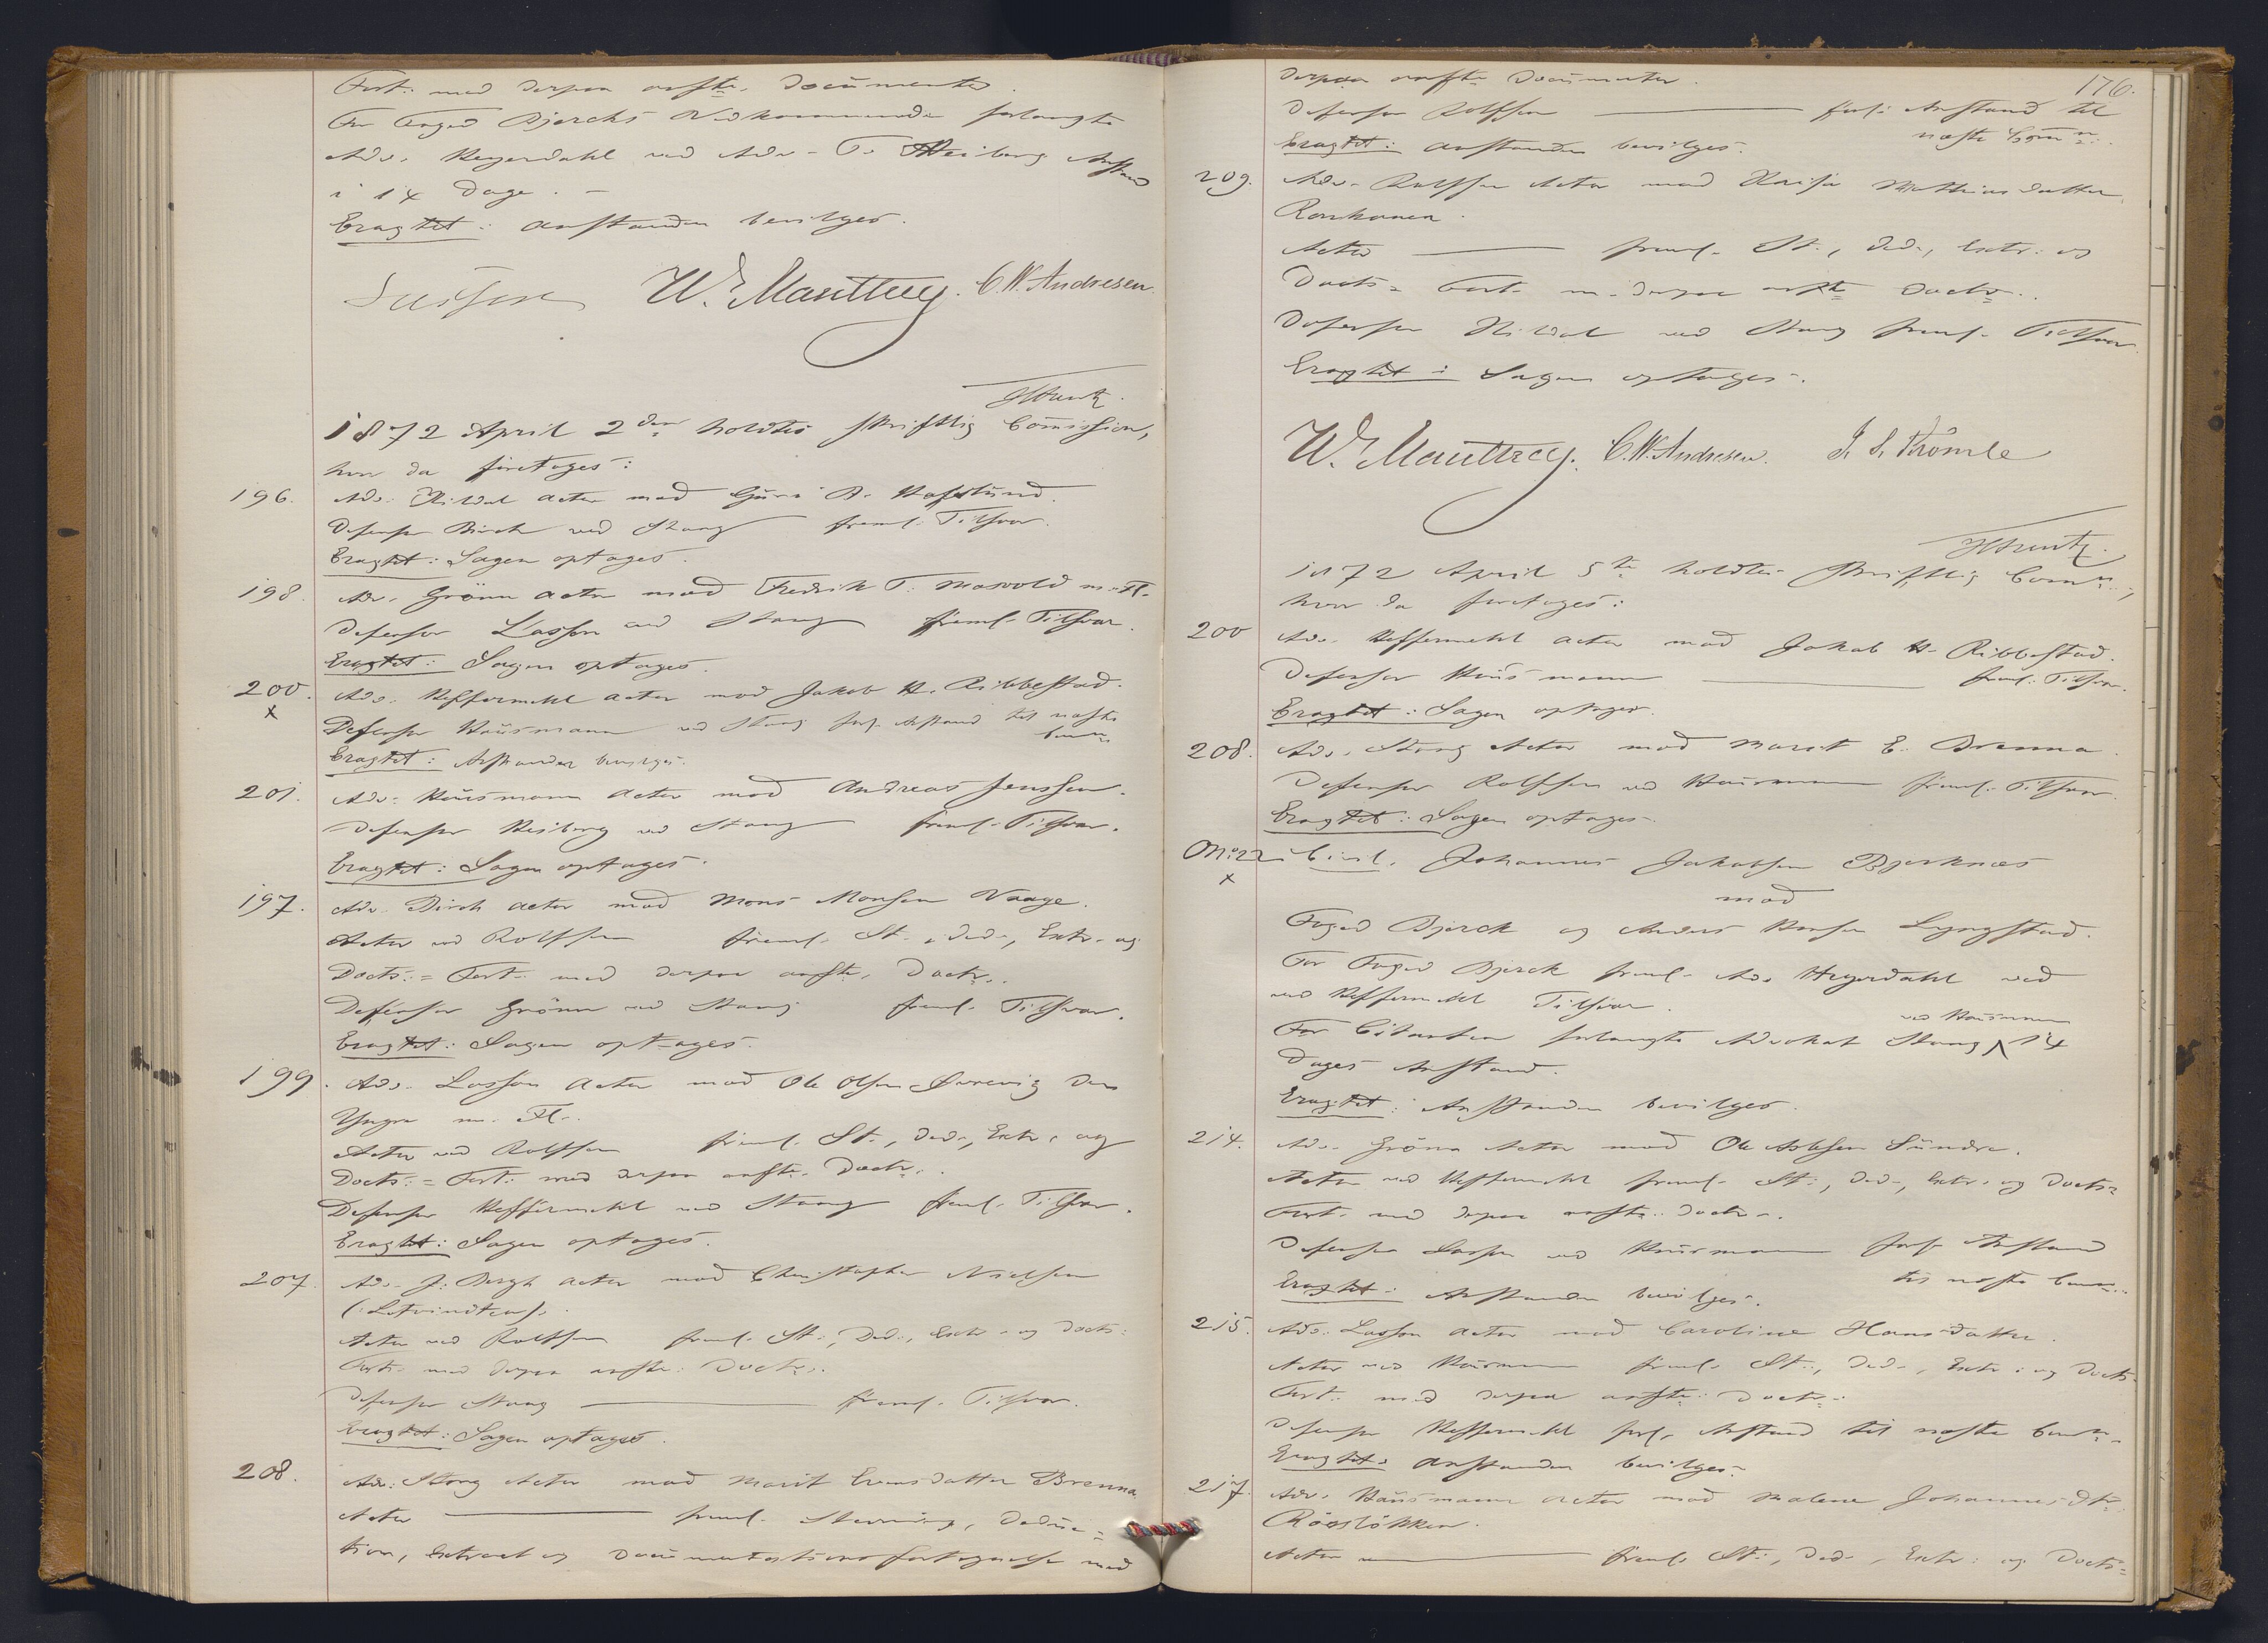 Fort: med derpaa anfte. Documenter.
For Foged Bjercks Vedkommende forlangte
Adv. Heyerdahl ved Adv. T. Heiberg Anstand
i 14 Dage. –
Eragtet: Anstanden bevilges.
W. Manttrey. C. W. Andresen.
1872 April 2den holdtes skriftlig Commission,
hvor da foretoges:
196. Adv: Hildal Actor mod Guri B. Hafslund.
Defensor Birch ved Stang freml. Tilsvar.
Eragtet: Sagen optages.
198. Adv. Grönn Actor mod Fredrik T. Moswold m. Fl.
Defensor Lasson ved Stang freml. Tilsvar.
Eragtet: Sagen optages.
200. Adv. Heffermehl Actor mod Jakob H. Ribbestad.
x
Defensor Hausmann ved Stang forl. Anstand til næste
Comn
Eragtet: Anstanden bevilges.
201. Adv. Hausmann Actor mod Andreas Jenssen.
Defensor Heiberg ved Stang freml. Tilsvar.
Eragtet: Sagen optages.
197. Adv. Birch Actor mod Mons Monsen Vaage.
Actor ved Rolfsen freml. St., Ded., Extr. og
Docts:= Fort. med derpaa anfte. Doctr.
Defensor Grönn ved Stang freml. Tilsvar.
Eragtet: Sagen optages.
199. Adv. Lasson Actor mod Ole Olsen den
Yngre m. Fl.
Actor ved Rolfsen freml. St., Ded., Extr. og
Docts:= Fort: med derpaa anfte. Doctr.
Defensor Heffermehl ved Stang freml. Tilsvar.
Eragtet: Sagen optages.
207. Adv. J. Bergh Actor mod Christopher Nielsen
Actor ved Rolfsen freml. St., Ded., Extr. og Docts:
Fort. med derpaa anfte. Doctr.
Defensor Stang — freml. Tilsvar.
Eragtet: Sagen optages.
208. Adv: Stang Actor mod Marit Evensdatter Brenna
Actor — freml. Stevning, Deduc=
tion, Extract og Documentationsfortegnelse med
176.
derpaa anfte Documenter.
Defensor Rolfsen — forl: Anstand til
næste Comn.
Eragtet: Anstanden bevilges.
209. Adv. Rolfsen Actor mod Kaisa Mathiasdatter
Actor — freml. St., Ded., Extr. og
Docts= Fort. m. derpaa anfte Doctr.
Defensor Hildal ved Stang freml. Tilsvar.
Eragtet: Sagen optages.
W. Manttrey. C. W. Andresen.
1872 April 5te holdtes skriftlig Comn.,
hvor da foretoges:
200 Adv. Heffermehl Actor mod Jakob H. Ribbestad.
Defensor Hausmann — freml. Tilsvar.
Eragtet: Sagen optages.
208. Adv. Stang Actor mod Marit E. Brenna.
Defensor Rolfsen ved Hausmann freml. Tilsvar.
Eragtet: Sagen optages.
No 22 Civil. Johannes Jakobsen Bjerknæs
x
mod
Foged Bjerck og Anders Hansen Lyngstad.
For Foged Bjerck freml. Adv. Heyerdahl ved
ved Heffermehl Tilsvar.
ved Hausmann
For Citanten forlangte Advokat Stang 14
Dages Anstand.
Eragtet: Anstanden bevilges.
214. Adv. Grönn Actor mod Ole Sundre.
Actor ved Heffermehl freml. St., Ded., Extr. og Docts=
Fort. med derpaa anfte. Doctr.
Defensor Lasson ved Hausmann forl. Anstand
til næste Comn.
Eragtet: Anstanden bevilges.
215. Adv: Lasson Actor mod Caroline Hansdatter.
Actor ved Hausmann freml. St., Ded., Extr. og Docts=
Fort: med derpaa anfte: Doctr.
Defensor Heffermehl forl. Anstand til næste Comn.
Eragtet: Anstanden bevilges.
217. Adv. Hausmann Actor mod Malene Johannesdtr.
Röoslökken.
Actor — freml. St., Ded., Extr. og Docts=